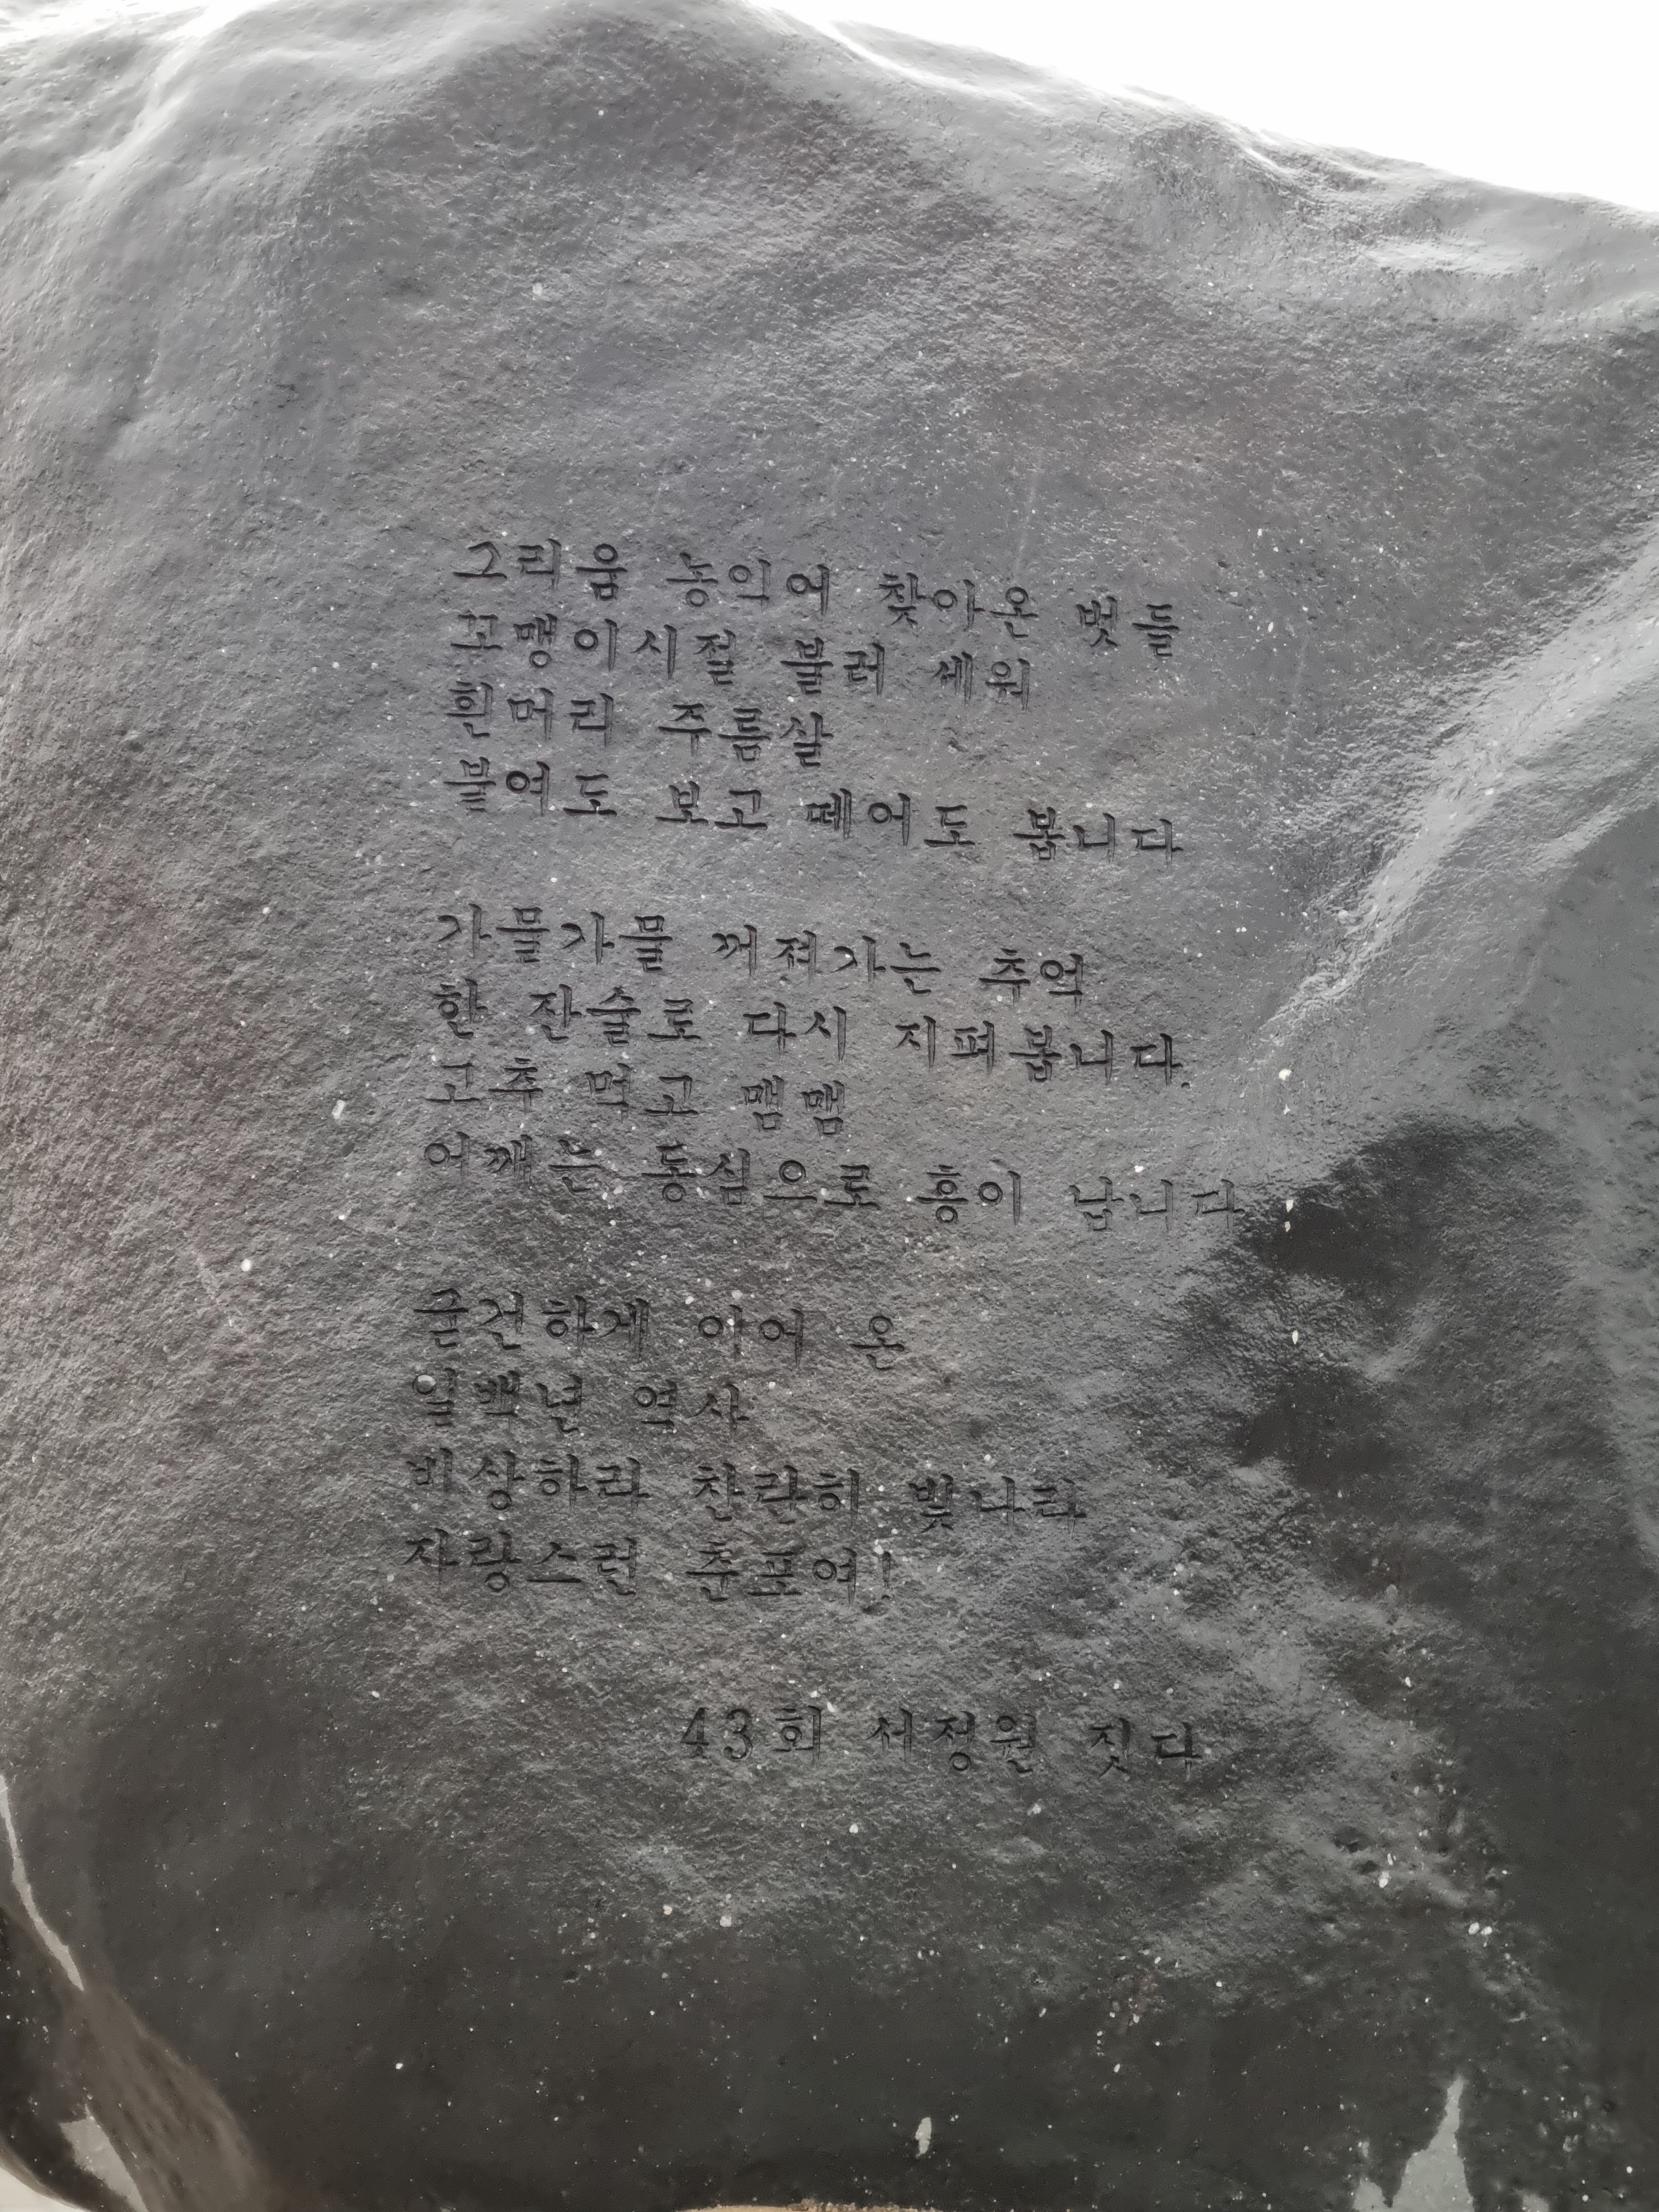 그리움 농익어 찾아온 벗들
꼬맹이시절 불러 세워
흰머리 주름살
붙여도 보고 떼어도 봅니다
가물가물 꺼져가는 추억
한 잔술로 다시 지펴봅니다.
고추 먹고 맴맴
어깨는 동심으로 흥이 납니다
굳건하게 이어 온
일백년 역사
비상하라 찬란히 빛나라
자랑스런 춘포여!
43회 서정원 짓다